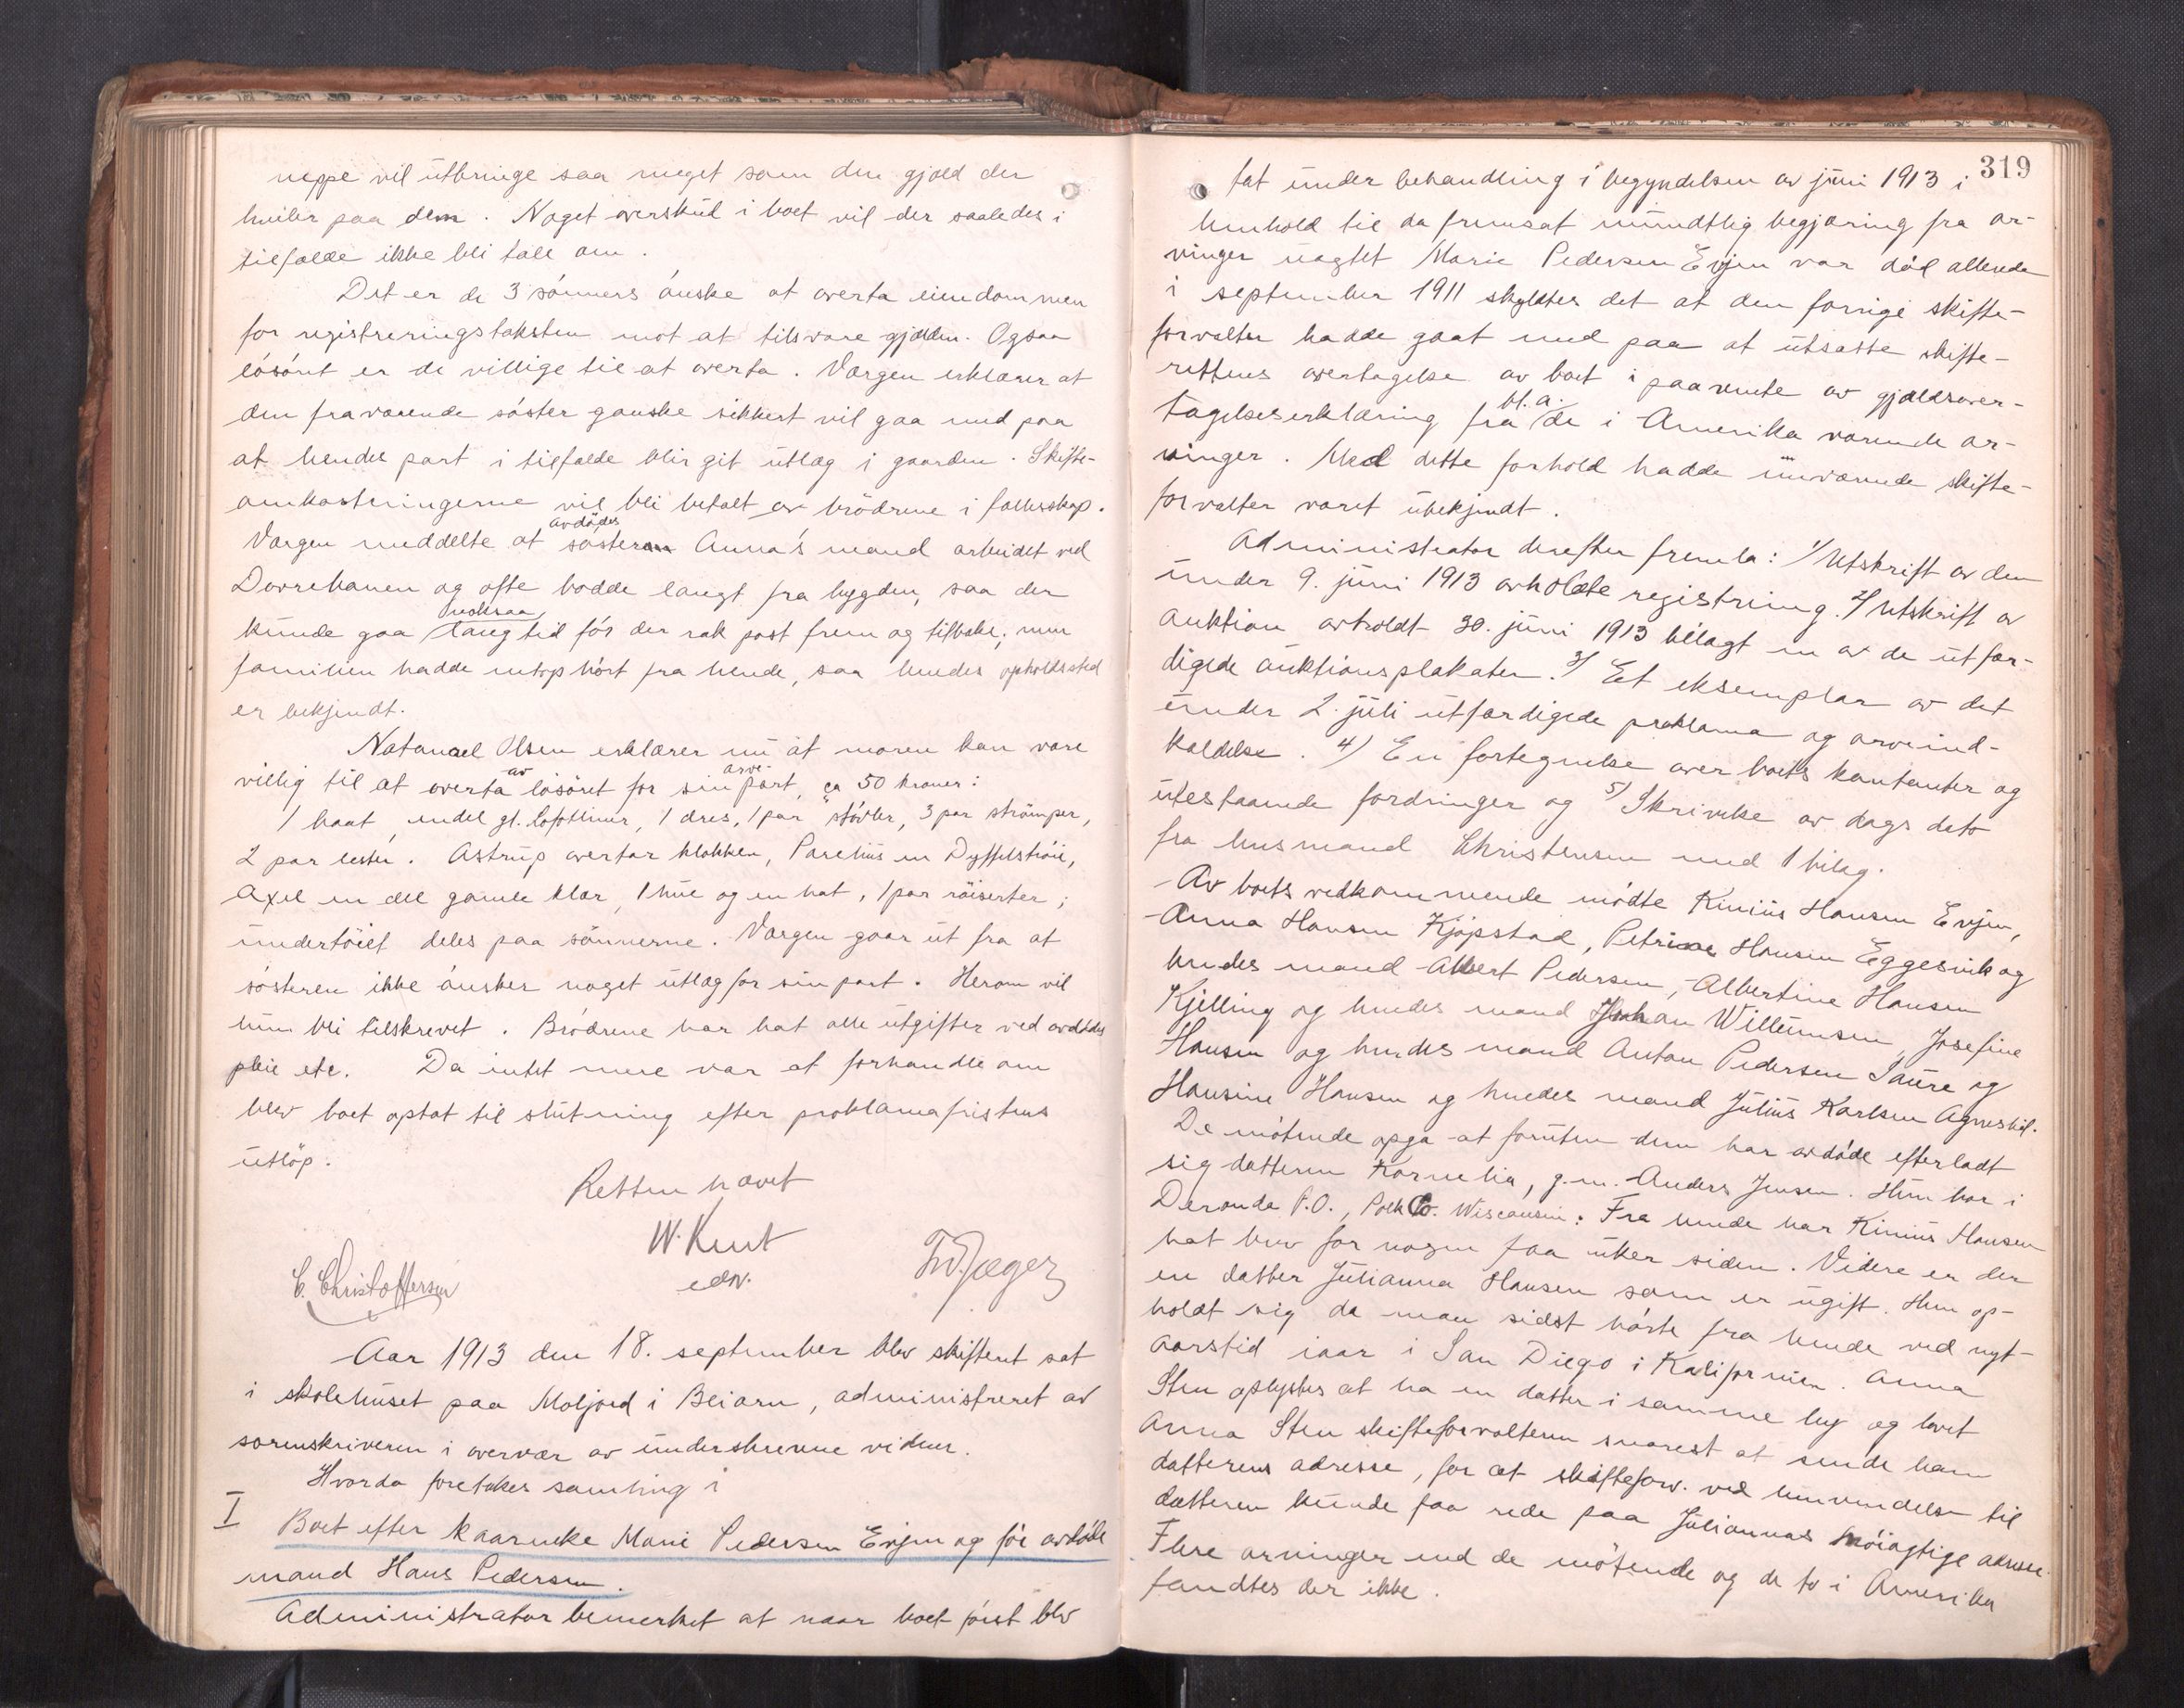 neppe vil utbringe saa meget som den gjæld der
hviler paa dem. Noget overskud i boet vil der saaledes i
tilfælde ikke bli tale om.
Det er de 3 sønners ønske at overta eiendommen
for registreringstaksten mot at tilsvare gjælden. Ogsaa
løsøret er de villige til at overta. Værgen erklærer at
den fraværende søster ganske sikkert vil gaa med paa
at hendes part i tilfælde blir git utlæg i gaarden. Skifte-
omkostningerne vil bli betalt av brødrene i fællesskap.
Værgen meddelte at avdødes søster Anna's mand arbeidet ved
Dovrebanen og ofte bodde langt fra bygden, saa der
kunde gaa noksaa lang tid før der rak post frem og tilbake; men
familien hadde netop hørt fra hende, saa hendes opholdssted
er bekjendt.
Natanael Olsen erklærer nu at moren kan være
villig til at overta av løsøret for sin arve-part, ca 50 kroner:
1 baat, endel gl. lofotliner, 1 dres, 1 par støvler, 3 par strømper,
2 par lester. Astrup overtar klokken, Parelius en Dyffelstrøie,
Axel en del gamle klær, 1 hue og en hat, 1 par røiserter;
undertøiet deles paa sønnerne. Værgen gaar ut fra at
søsteren ikke ønsker noget utlæg for sin part. Herom vil
hun bli tilskrevet. Brødrene har hat alle utgifter ved avdødes
pleie etc. Da intet mere var at forhandle om
blev boet optat til slutning efter proklamafristens
utløp.
Retten hævet
W. Kent
edv.
C. Christoffersen
Fr. Jæger
Aar 1913 den 18. september blev skifteret sat
i skolehuset paa Moljord i Beiarn, administreret av
sorenskriveren i overvær av underskrevne vidner.
Hvorda foretokes samling i
I Boet efter kaarenke Marie Pedersen Evjen og før avdøde
mand Hans Pedersen.
Administrator bemerket at naar boet først blev
319
tat under behandling i begyndelsen av juni 1913 i
henhold til da fremsat mundtlig begjæring fra ar-
vinger uagtet Marie Pedersen Evjen var død allerede
i september 1911 skyldtes det at den forrige skifte-
forvalter hadde gaat med paa at utsætte skifte-
rettens overtagelse av boet i paavente av gjældsover-
tagelseserklæring fra bl. a. de i Amerika værende ar-
vinger. Med dette forhold hadde nuværende skifte-
forvalter været ubekjendt.
Administrator derefter fremla: 1/ Utskrift av den
under 9. juni 1913 avholdte registrering. 2/ Utskrift av
auktion avholdt 30. juni 1913 bilagt en av de utfær-
digede auktionsplakater. 3/ Et eksemplar av det
under 2. juli utfærdigede proklama og arveind-
kaldelse. 4/ En fortegnelse over boets kontanter og
utestaaende fordringer og 5/ Skrivelse av dags dato
fra husmand Christensen med 1 bilag.
Av boets vedkommende mødte Kinius Hansen Evjen,
Anna Hansen Kjøpstad, Petrine Hansen Eggesvik og
hendes mand Albert Pedersen, Albertine Hansen
Kjelling og hendes mand Johan Willumsen, Josefine
Hansen og hendes mand Anton Pedersen Saure og
Hansine Hansen og hendes mand Julius Karlsen
De møtende opga at foruten dem har avdøde efterladt
sig datteren Kornelia, g.m. Anders Jensen. Hun bor i
Deronda P.O., Polk Co. Wisconsin. Fra hende har Kinius Hansen
hat brev for nogen faa uker siden. Videre er der
en datter Julianna Hansen som er ugift. Hun op-
holdt sig da man sidst hørte fra hende ved nyt-
aarstid iaar i San Diego i Kalifornien. Anna
Sten oplystes at ha en datter i samme by og lovet
Anna Sten skifteforvalteren snarest at sende ham
datterens adresse, for at skifteforv. ved henvendelse til
datteren kunde faa rede paa Juliannas nøiagtige adresse.
Flere arvinger end de møtende og de to i Amerika
fandtes der ikke.